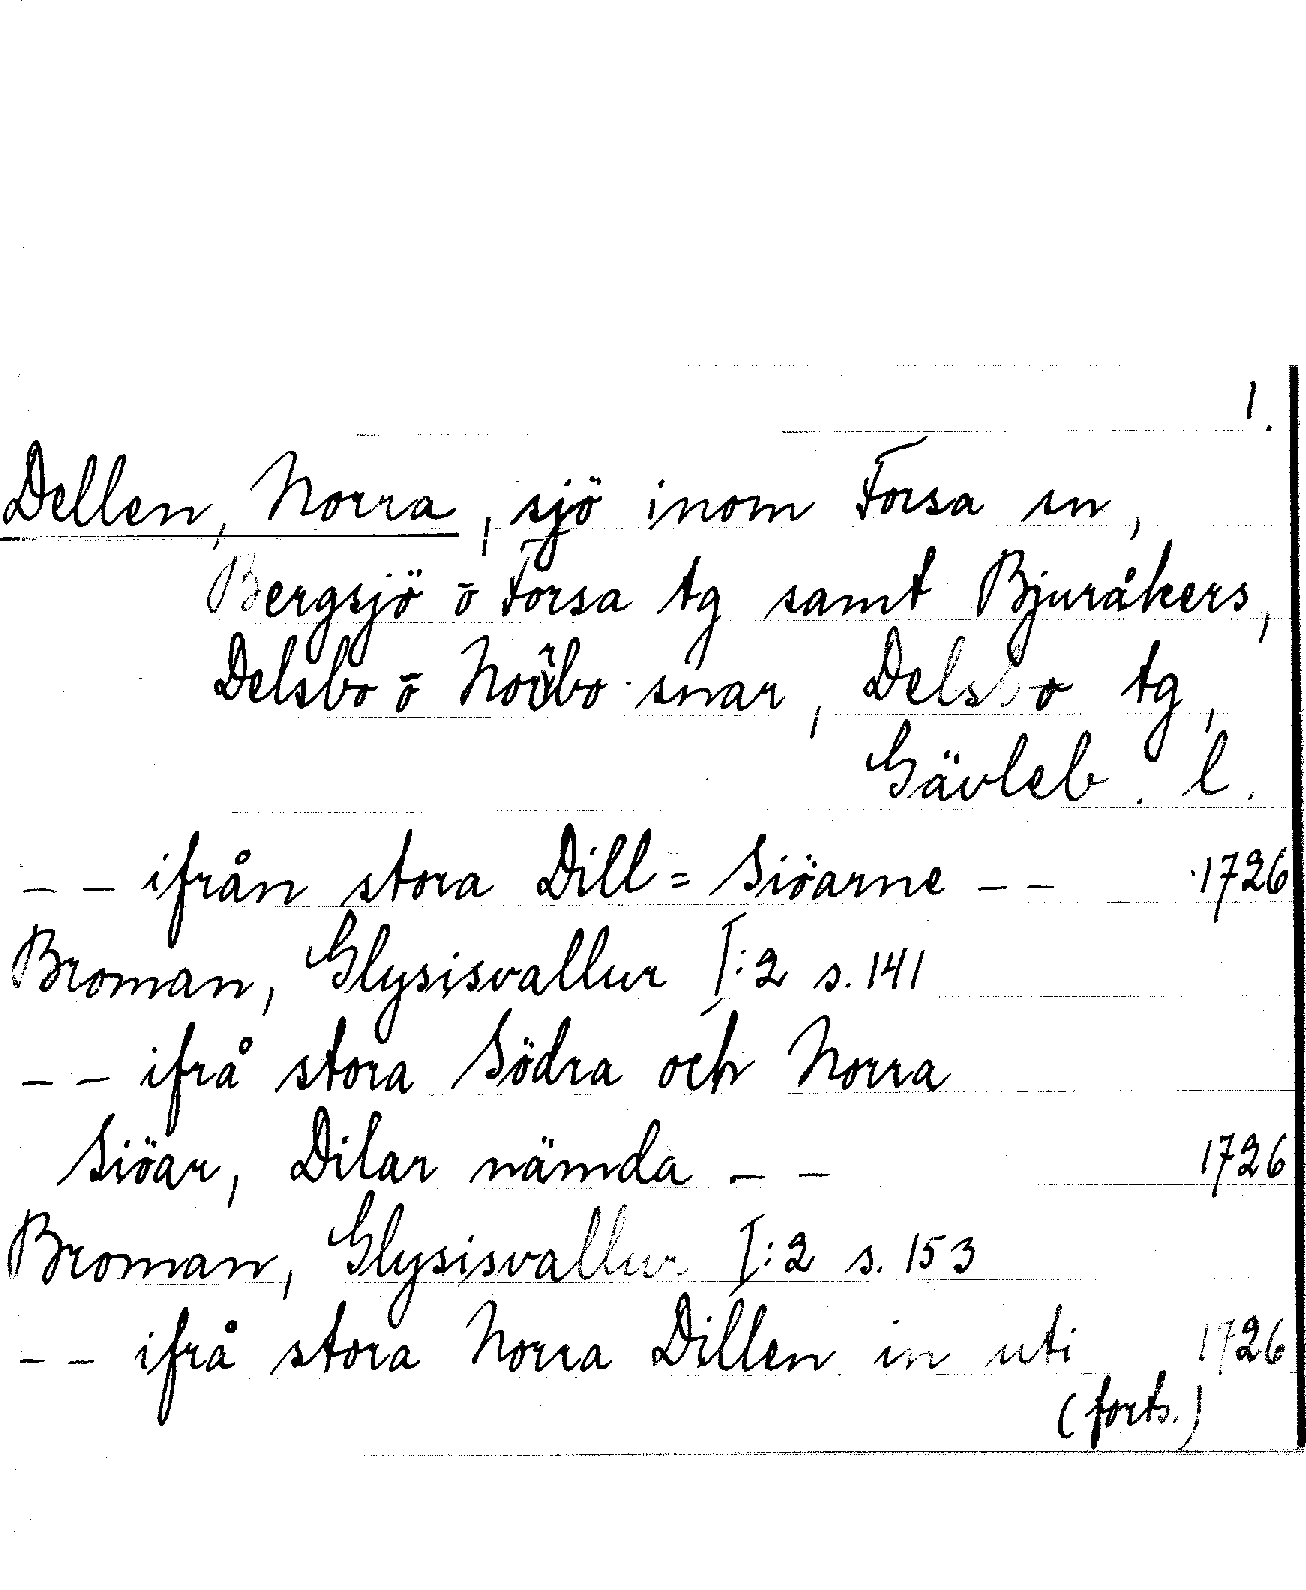 1.
Dellen, Norra, sjö inom Forsa sn,
Bergsjö o Forsa tg samt Bjuråkers,
Delsbo o Norrbo snar, Delsbo tg,
Gävleb. l.
-- ifrån stora Dill=Siöarne -- 1726
Broman, Glysisvallur I:2 s. 141
-- ifrå stora Södra och Norra
Siöar, Dilar nämda -- 1726
Broman, Glysisvallur I:2 s. 153
-- ifrå stora Norra Dillen in uti 1726
(forts.)